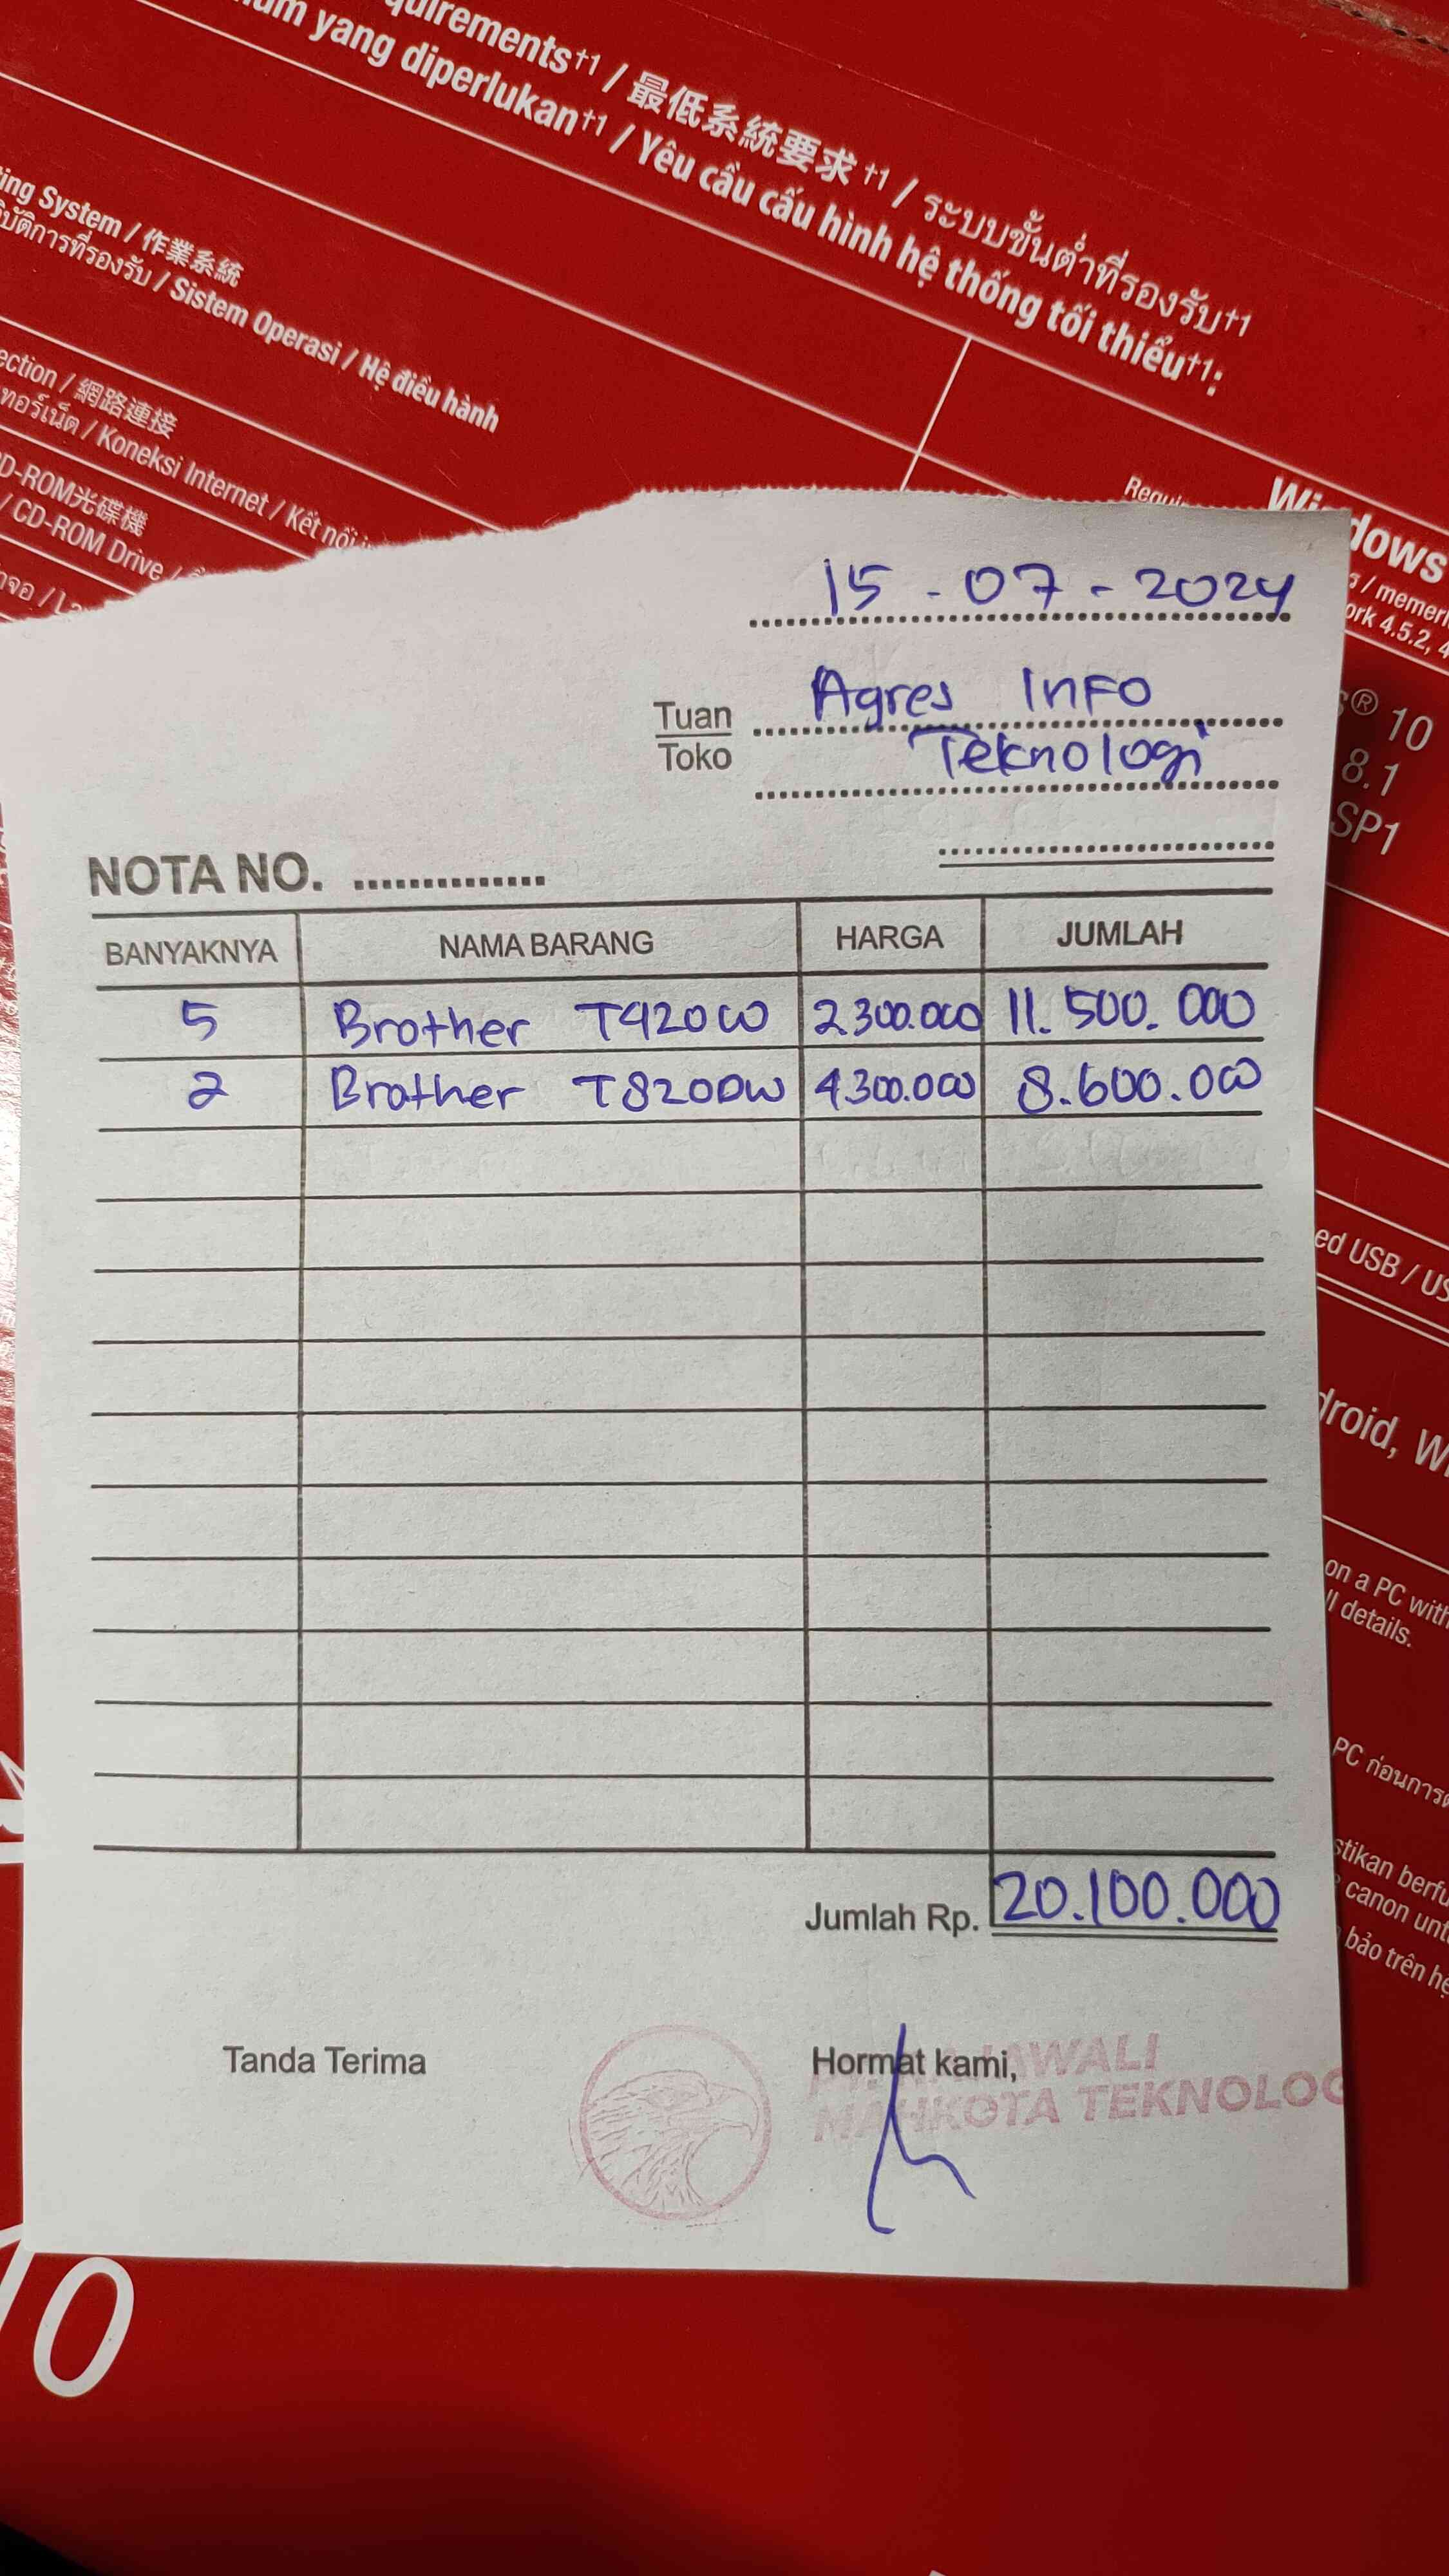 quirements†1 / 最低系統要求 †1 / ระบบขั้นต่ำที่รองรับ†1
um yang diperlukan†1 / Yêu cầu cấu hình hệ thống tối thiểu†1:
ing System / 作業系統
บัติการที่รองรับ / Sistem Operasi / Hệ điều hành
ection / 網路連接
ทอร์เน็ต / Koneksi Internet / Kết nối
D-ROM光碟機
/ CD-ROM Drive /
Windows
/ memer
ork 4.5.2, 4
® 10
8.1
SP1
15 - 07 - 2024
Tuan Agres Info
Toko Teknologi
NOTA NO. ..............
BANYAKNYA NAMA BARANG HARGA JUMLAH
5 Brother T420W 2.300.000 11.500.000
2 Brother T820DW 4.300.000 8.600.000
ed USB / US
droid, W
on a PC with
ll details.
PC ก่อนการ
stikan berfu
canon unt
bảo trên hệ
Jumlah Rp. 20.100.000
Tanda Terima
Hormat kami,
JAWALI
MAHKOTA TEKNOLOG
10